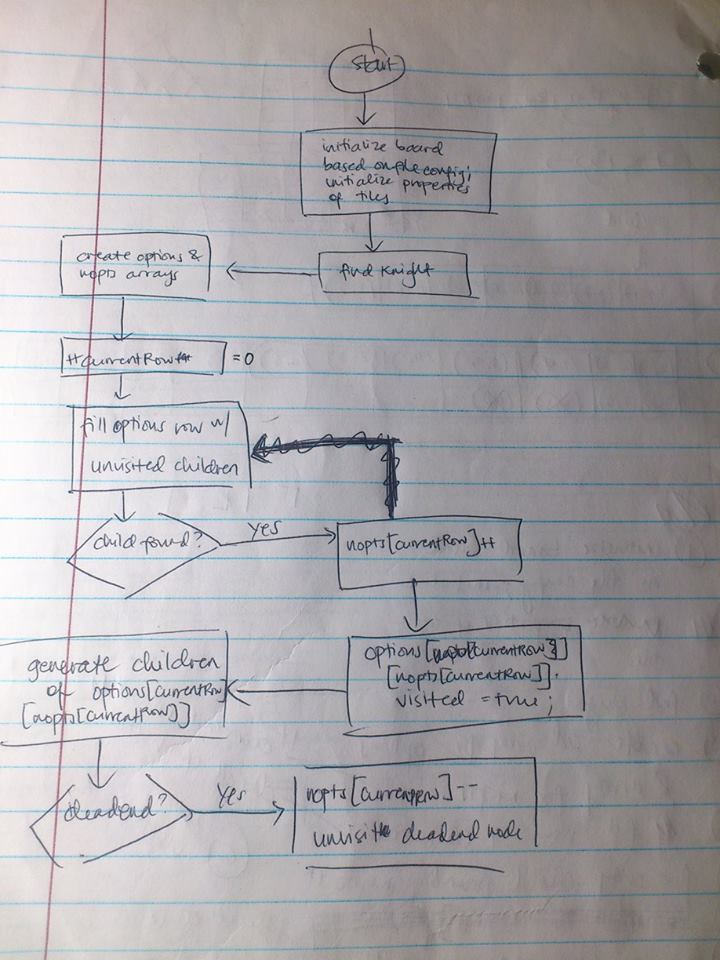 start
initialize board
based on file config;
initialize properties
of tiles
find Knight
create options &
nopts arrays
++currentRow++ = 0
fill options row w/
unvisited children
child found?
yes
nopts[currentRow]++
options[currentRow]
[nopts[currentRow]].
visited = true;
generate children
of options[currentRow]
[nopts[currentRow]]
deadend?
Yes
nopts[currentRow]--
unvisit deadend node